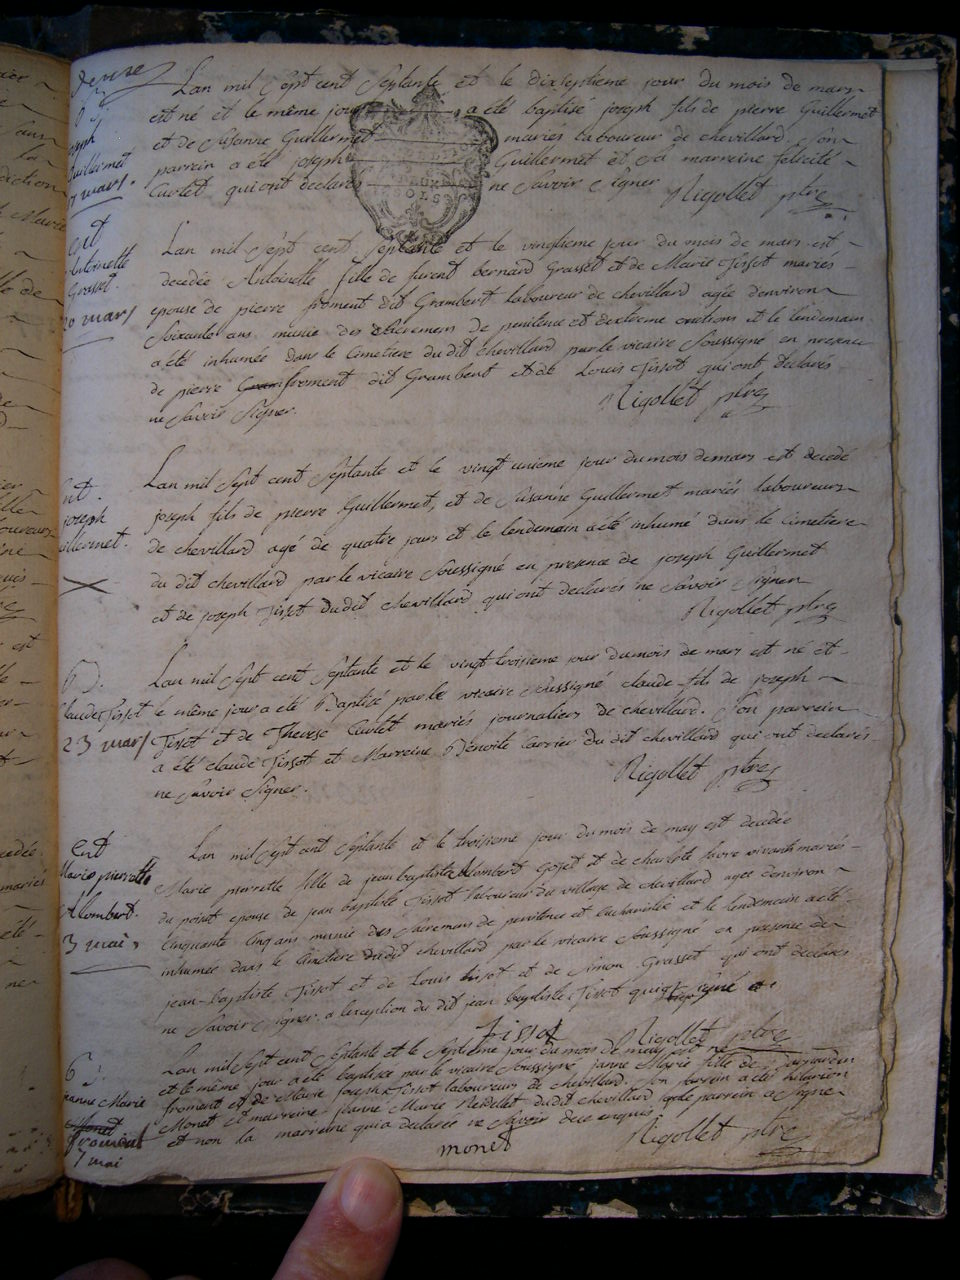 Lan mil Sept cent Septante et le dixseptieme jour du mois de mars
est né et le même jour a été baptisé joseph fils de pierre Guillermet
et de Susanne Guillermet mariés laboureur de chevillard, Son
parrein a eté joseph Guillermet et Sa marreine felicité
Curtet qui ont declarés ne Savoir Signer Nigollet ptre
7 mars.
ent
Antoinette
Grasset.
20 mars
Lan mil Sept cent Septante et le vingtieme jour du mois de mars est
decedée Antoinette fille de furent bernard Grasset et de Marie Tissot mariés
epouse de pierre froment dit Grambert laboureur de chevillard agée denviron
Soixante ans munie des Sacremens de penitence et dextreme onctions et le lendemain
a été inhumée dans le Cimetiere du dit chevillard par le vicaire Soussigné en presence
de pierre froment dit Grambert et de Louis Tissot qui ont declarés
ne Savoir Signer. Nigollet ptre
ent.
joseph
Guillermet.
Lan mil Sept cent Septante et le vingt unieme jour du mois de mars est decedé
joseph fils de pierre Guillermet, et de Susanne Guillermet mariés laboureurs
de chevillard agé de quatre jours et le lendemain a été inhumé dans le Cimetiere
du dit chevillard par le vicaire Soussigné en presence de joseph Guillermet
et de joseph Tissot du dit chevillard qui ont declarés ne Savoir Signer
Nigollet ptre
Claude Tissot
23 mars
Lan mil Sept cent Septante et le vingt troisieme jour du mois de mars est né et
le même jour a été Baptisé par le vicaire Soussigné claude fils de joseph
Tissot et de Therese Curtet mariés journaliers de chevillard. Son parrein
a été claude Tissot et Marreine Benoite Carrier du dit chevillard qui ont declarés
ne Savoir Signer. Nigollet ptre
Ent
Marie pierrette
Allombert.
3 mai
Lan mil Sept cent Septante et le troisieme jour du mois de may est decedée
Marie pierrette fille de jean baptiste Allombert Gojet et de charlote favre vivants mariés
du poisat epouse de jean baptiste Tissot laboureur du village de chevillard agée denviron
Cinquante Cinq ans munie des Sacremens de penitence et Eucharistie et le lendemain a été
inhumée dans le Cimetiere du dit chevillard par le vicaire Soussigné en presence de
jean-baptiste Tissot et de Louis tissot et de Simon Grasset qui ont declarés
ne Savoir Signer a lexception du dit jean baptiste Tissot qui a Signé
Tissot Nigollet ptre
B
jeanne Marie
froment
7 mai
Lan mil Sept cent Septante et le Septieme jour du mois de may est né
et le même jour a été baptisée par le vicaire Soussigné janne Marie fille de
froment et de Marie Joseph Tissot laboureurs de chevillard. Son parrein a été hilarion
Monet et marreine janne Marie du dit chevillard le parrein a Signé
et non la marreine qui a declarée ne Savoir de ce enquise
monet Nigollet ptre